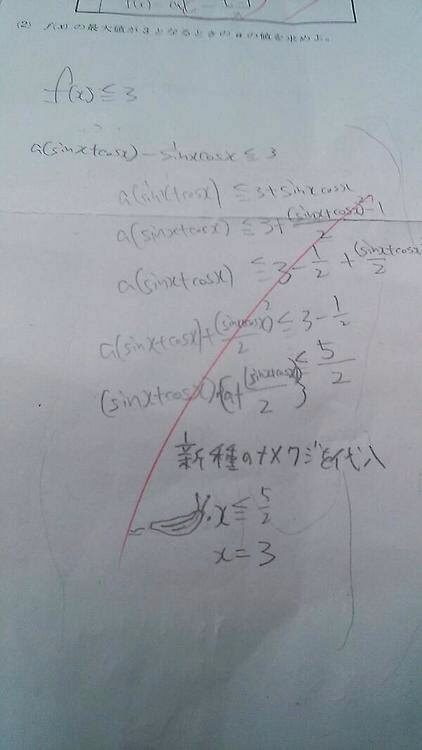 (2) f(x) の最大値が 3 となるときの a の値を求めよ。
f(x) ≦ 3
a(sinx+cosx) - sinxcosx ≦ 3
a(sinx+cosx) ≦ 3+sinxcosx
a(sinx+cosx) ≦ 3+ (sinx+cosx)²-1 / 2
a(sinx+cosx) ≦ 3 - 1/2 + (sinx+cosx) / 2
a(sinx+cosx) + (sinx+cosx)² / 2 ≦ 3 - 1/2
(sinx+cosx){a+ (sinx+cosx) / 2} ≦ 5/2
新種のナメクジを代入
x ≦ 5/2
x = 3